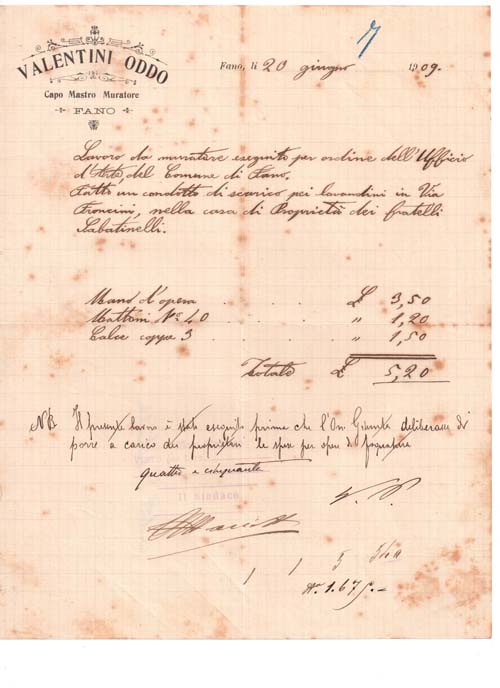 7
VALENTINI ODDO
Capo Mastro Muratore
FANO
Fano, li 20 giugno 1909.
Lavoro da muratore eseguito per ordine dell'Ufficio
d'Arte del Comune di Fano,
Fatto un condotto di scarico pei lavandini in Via
Froncini, nella casa di Proprietà dei fratelli
Sabatinelli.
Mano d'opera . . . £ 3,50
Mattoni N.° 40 . . . " 1,20
Calce coppe 3 . . . " 1,50
Totale £ 5,20
NB Il presente lavoro è stato eseguito prima che l'On. Giunta deliberasse di
porre a carico dei proprietari le spese per opere di fognature
quattro e cinquanta
Il Sindaco
V. P.
1 1 5